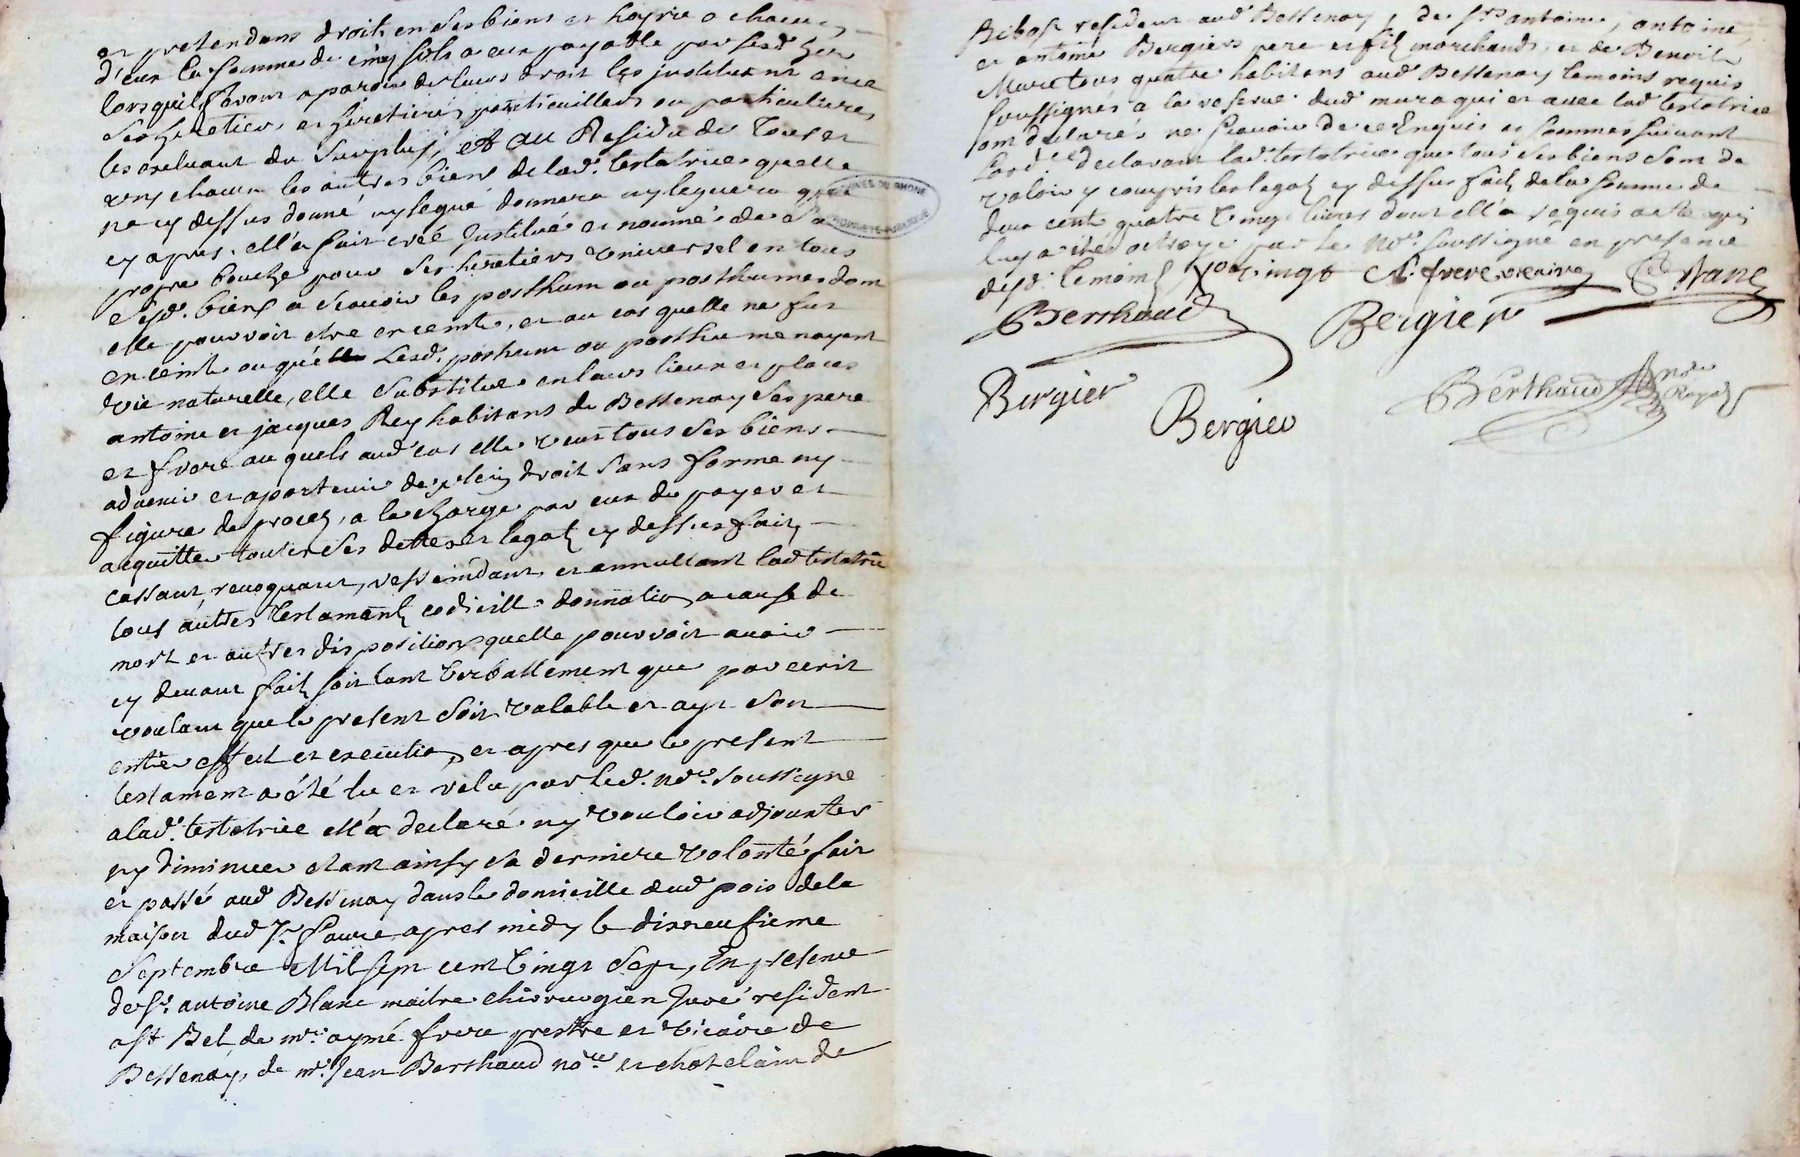 et pretendans droit en ses biens et hoyrie a chacun
d'eux la somme de cinq sols a eux payable par sesd. her
lorsquil feront aparoir de leurs droit les instituant avec
ses heretiers et heretieres particuilliers ou particulieres
les excluant du surplus, et au Residu de tous et
uns chacun les autres biens de lad. testatrice quelle
na cy dessus donné ny legué donnera ny leguera
cy apres, ell'a fait creé Institué et nommé de sa
propre bouche pour ses heretiers universel en tous
sesd. biens a scavoir les posthum ou posthumes dont
elle pouvoit etre enceinte, et au cas quelle ne fut
enceinte ou que lesd. posthum ou posthume nayent
vie naturelle, elle substitue en leurs lieux et places
antoine et jacques Rey habitans de Bessenay ses pere
et frere auquels aud. cas elle veut tous ses biens
advenir et apartenir de plein droit sans forme ny
figure de procez, a la charge par eux de payer et
acquitter toutes ses dettes et legatz cy dessus faitz
cassant, revoquant, resseindant, et annullant lad. testatrice
tous autres testamentz codicill donnation a cause de
mort et autres dispositions quelle pouvoit avoir
cy devant faitz soit tant verballement que par ecrit
voulant que le present soit valable et aye son
entier effect et execution, et apres que le present
testament a été lu et relu par led. no.re soussigne
a lad. testatrice ell'a declaré ny vouloir adjouxter
ny diminuer etant ainsy sa derniere volonté fait
et passé aud. Bessenay dans le domicille dud. pois de la
maison dud. Sr. faure apres midy le dixneufieme
Septembre Mil sept cent vingt sept, En presence
de Sr. antoine Blanc maitre chirurgien Juré resident
a St. Bel de mre. aymé frere prestre et vicaire de
Bessenay, de mr. Jean Berthaud no.re et chatelain de
Bibost resident aud. Bessenay, de Srs. antoine, antoine,
et antoine Bergiers pere et filz marchands, et de Benoit
Mure tous quatre habitans aud. Bessenay temoins requis
soussignés a la reserve dud. mure qui et avec lad. testatrice
ont declarés ne scavoir de ce Enquis et sommes suivant
Lord.ce declarant lad. testatrice que tous ses biens sont de
valoir y compris les legatz cy dessus faitz de la somme de
deux cent quatre vingt livres dont ell'a requis acte qui
luy a été octroyé par le no.re soussigné en presence
desd. temoins
frere vicaire
Blanc
Berthaud
Bergier
Bergier
Bergier
Berthaud
Royal